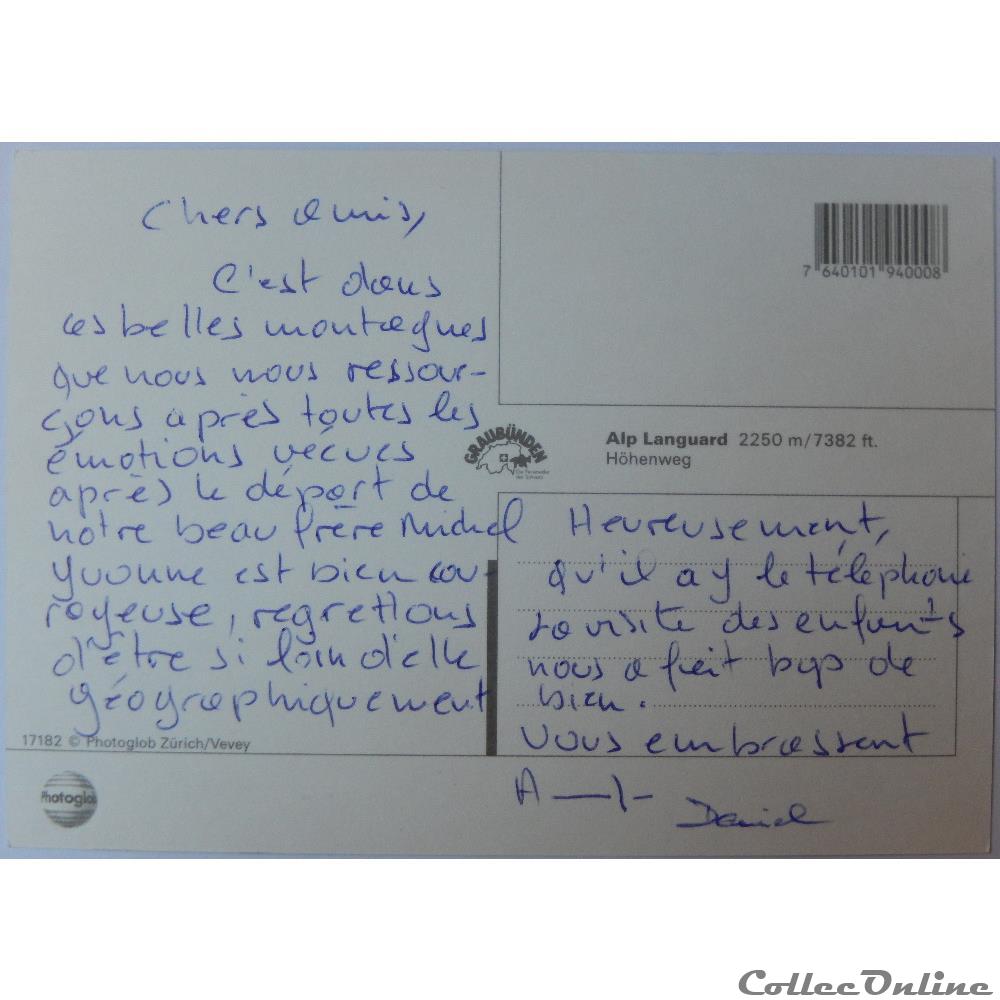 Chers amis,
C'est dans
ces belles montagnes
que nous nous ressour-
çons après toutes les
émotions vécues
après le départ de
notre beau frère Michel
Yvonne est bien cou-
rageuse, regrettons
d'être si loin d'elle
géographiquement
17182 © Photoglob Zürich/Vevey
Photoglob
7 640101 940008
GRAUBÜNDEN
Die Ferienecke
der Schweiz
Alp Languard 2250 m/7382 ft.
Höhenweg
Heureusement,
qu'il a y le téléphone
la visite des enfants
nous a fait bcp de
bien.
Vous embrassent
Daniel
CollecOnline